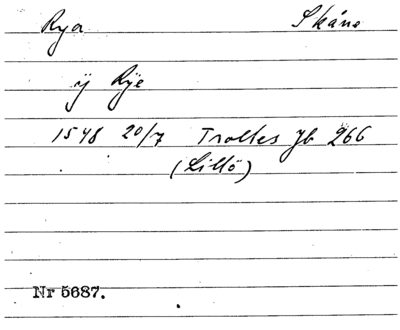 Rya Skåne
ÿ Rÿe
1548 20/7 Trolles Jb 266
(Lillö)
Nr 5687.